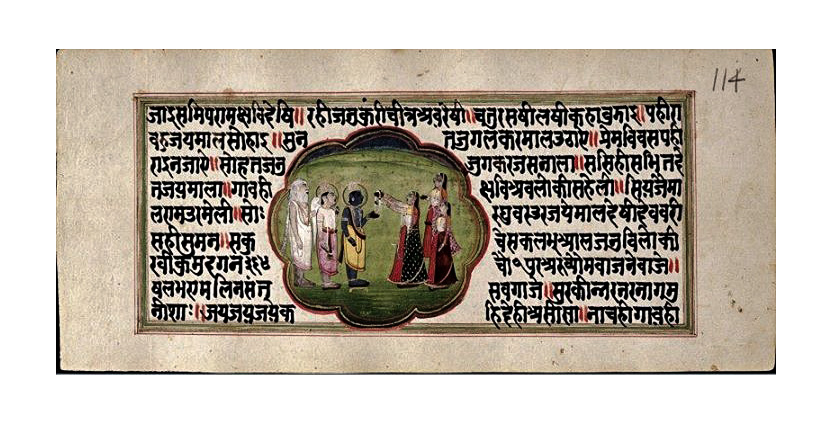 114
जाइसमिपरामछविदेषि॥ रहीजनुकुंरीचीत्रअवरेषी॥ चतुरसषीलषीकहाबुझाइ॥पहीरा
वहुजयमालसोहाइ॥सुन तजुगलकरमालउठाए॥प्रेमबिवसपही
राइनजाऐ॥सोहतजनु जुगकरजसनाला॥ससिहीसभितदे
तजयमाला॥गावही छविअवलीकीसहेली॥सियजेमा
लरामउरमेली॥सोः रघुवरउरजयमालदेषीदेववरी
सहीसुमन॥सकु चेसकलभुआलजनुविलोकी
रवीकुमुदगन पुरअरुव्योमवाजनेबाजे॥
षलभएमलिनसत सबगाजे॥सुरकीन्नरनरनागमु
नीशाः॥जयजयजयक हिदेहीअसीसा॥नाचहीगावही